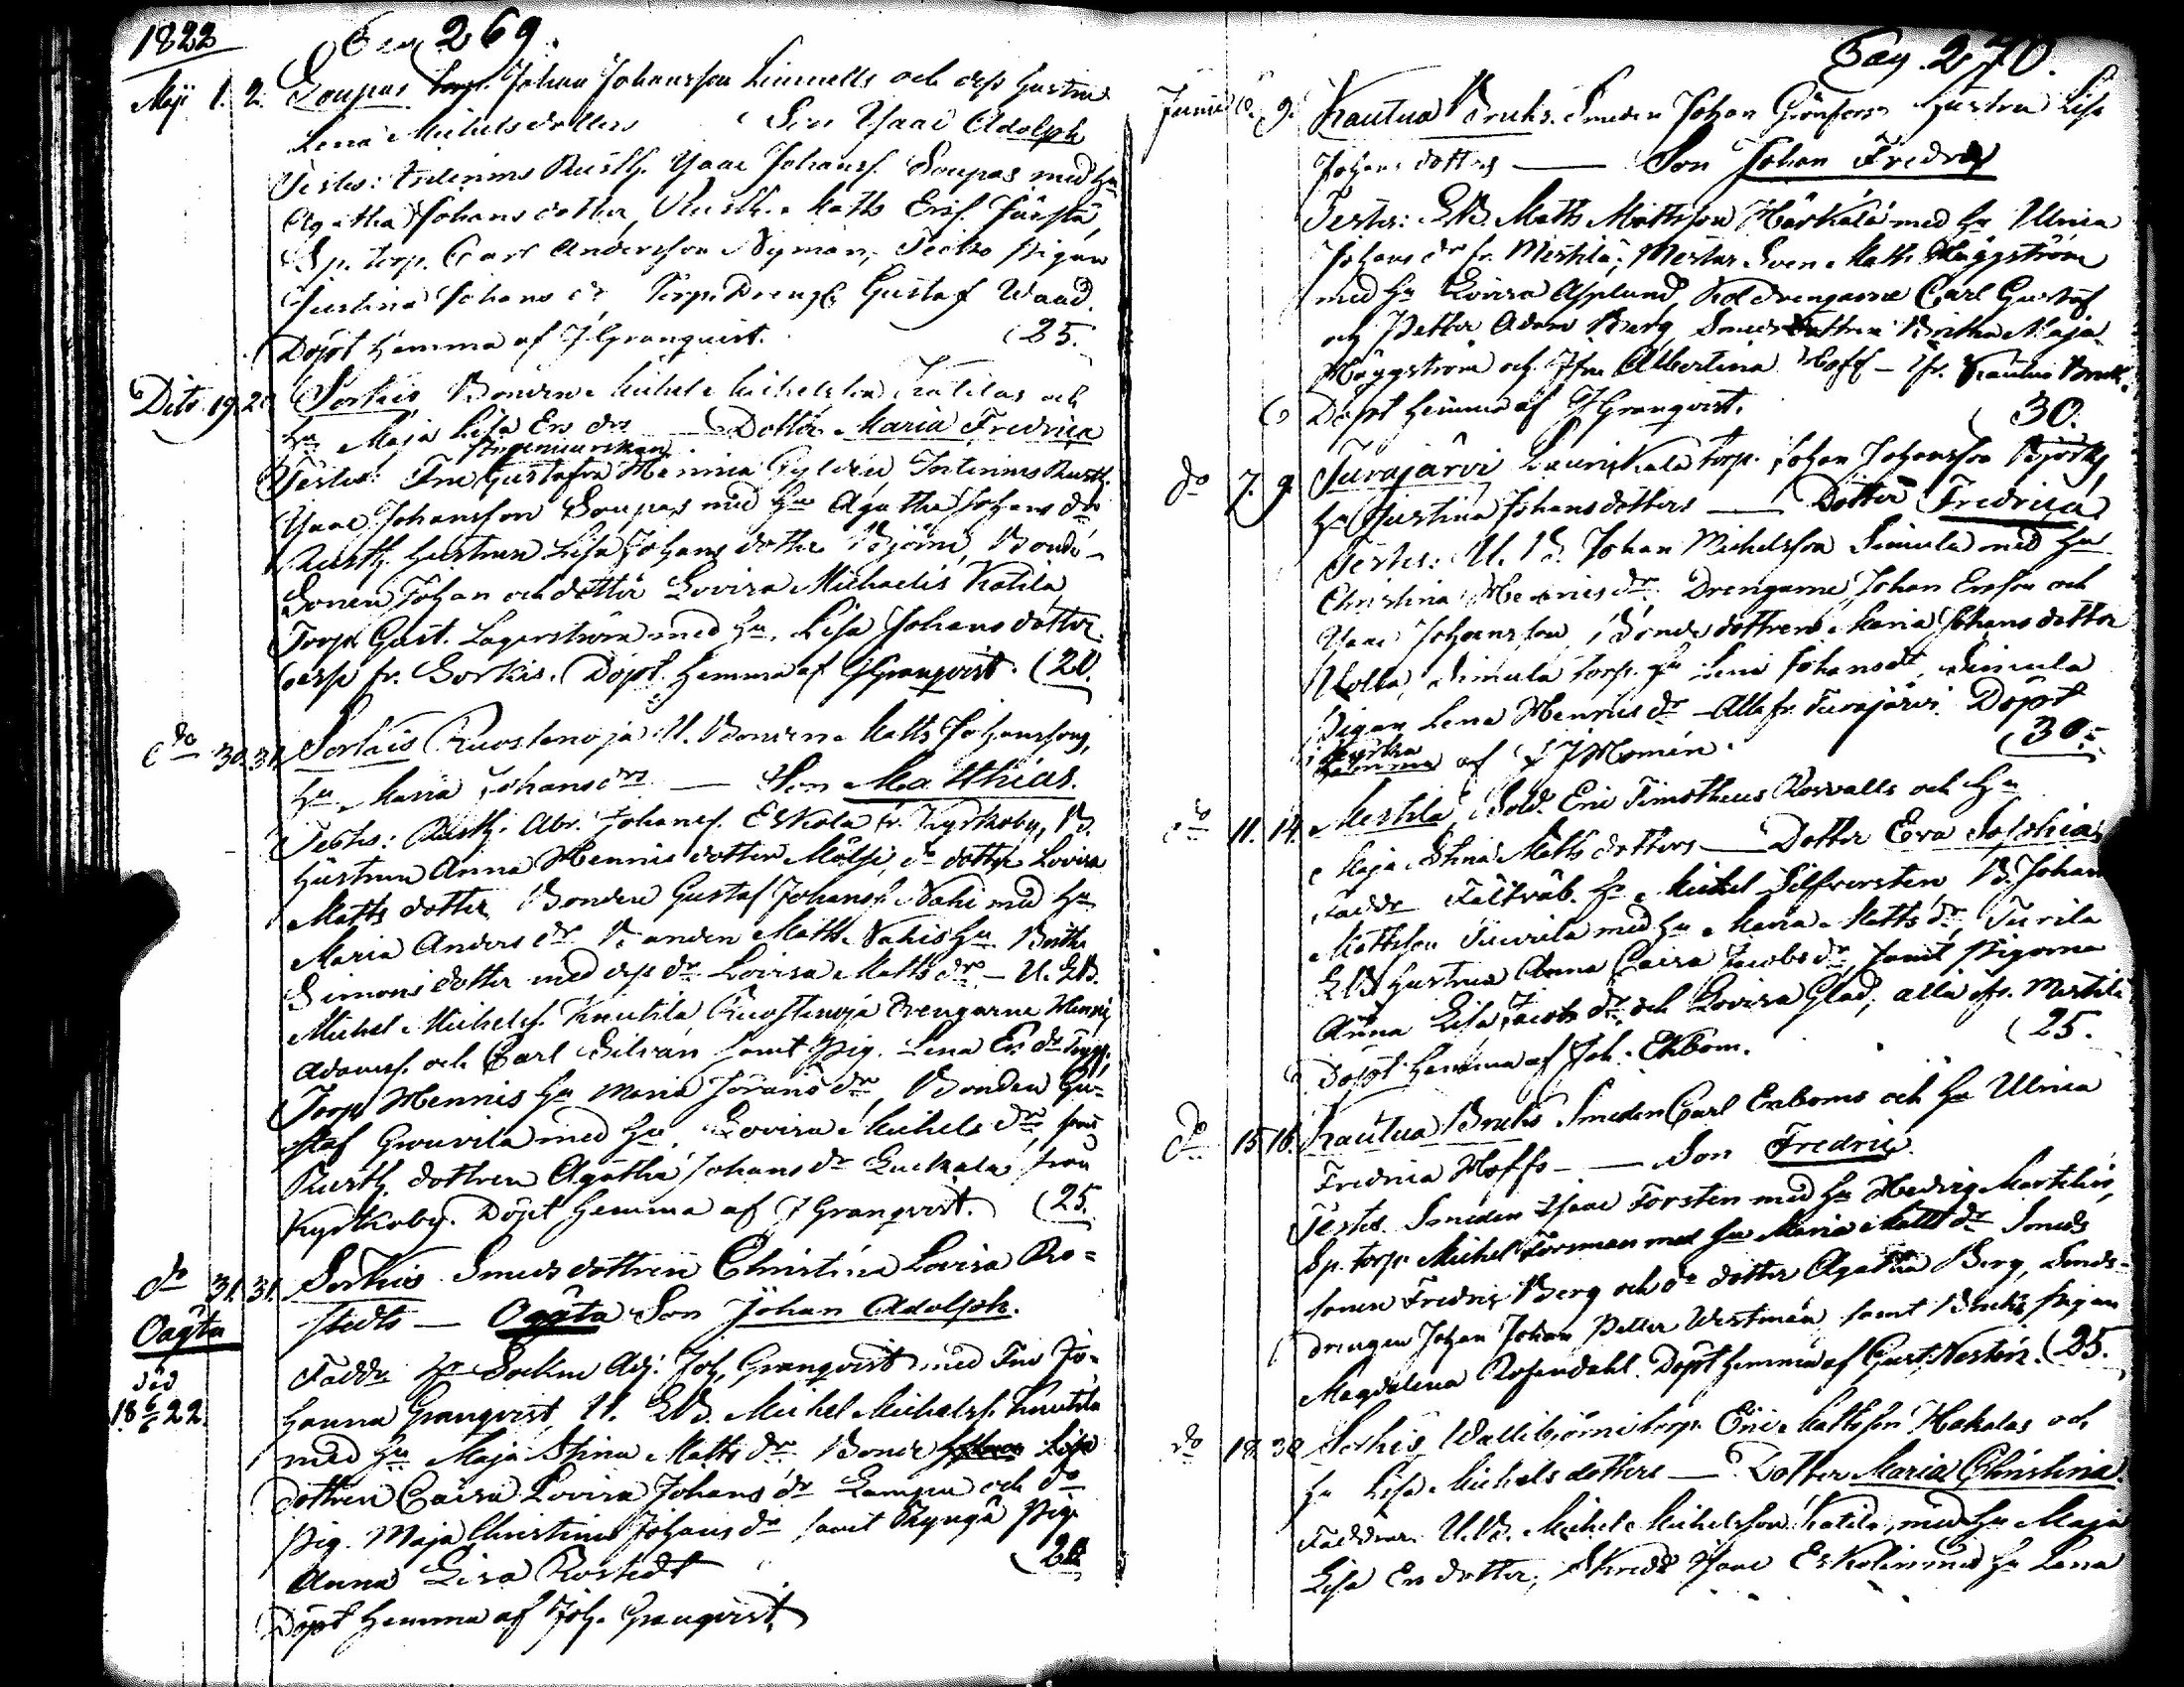 1822
Pag 269.
Maji 1. 2. Soupas Torp. Johan Johansson Limnells och dess hustru
Lena Michelsdotters Son Isaac Adolph
Testes: Inhemms Rusth. Isaac Johanss. Soupas med hu
Agatha Johansdotter, Rusth. Matts Erss.
Sp. torp. Carl Andersson Nyman, pigan
Justina Johans dr Torp. Drengen Gustaf Waad.
Döpt hemma af J Granquist. (25.
Dito 19. 20 Sorkis Bonden Michel Michelsson Katilas och
hu Maja Lisa Ers drs — Dotter Maria Fredrica
Ingenieurskan
Testes: Fru Gustafva Henrica Gyldén, Rusth.
Isaac Johansson Soupas med hu Agatha Johans dr
Rusth. hustrun Lisa Johans dotter Björni, Bonde-
Sonen Johan och dotter Lovisa Michaelis Katila
Torp. Gust. Lagerström med hu. Lisa Johans dotter
fr. Sorkis. Döpt hemma af J Granqvist. (20.
do 30. 31. Sorkis Ruostenoja U. Bonden Matts Johanssons,
hu Maria Johans drs — Son Matthias.
Testes: Rusth. Abr. Johanss. Eskola fr. Kyrkoby, B.
hustrun Anna Henrics dotter Mölsi, dr dotter Lovisa
Matts dotter Bonden Gustaf Johanss. Nahi med hu
Maria Anders dr Bonden Matts Nahis hu Britha
Simons dotter med dess dr Lovisa Matts dr — U. LB.
Michel Michelss. Knutila Ruostenoja Drengarne Henric
Adamss. och Carl Silván samt Pig. Lena Ers dr
Torp. Henrics hu Maria Jörans dr Bonden Gu-
staf Grouvila med hu. Lovisa Michels dr samt
Rusth. dottren Agatha Johans dr Luckala från
Kyrkoby. Döpt hemma af J Granqvist. (25.
do 31. 31. Sorkis Smeds dottren Christina Lovisa Ro-
Oägta
död
18 6/6 22.
stedts — Oägta Son Johan Adolph.
Faddr. Hr Sockne Adj: Joh. Granqvist med Fru Jo-
hanna Granqvist, U. LB. Michel Michelss. Knutila
med hu Maja Stina Matts dr Bonde Lisa
dottren Caisa Lovisa Johans dr Lampu och do
pig. Maja Christina Johans dr samt pig.
Anna Lisa Rostedt (20
Döpt hemma af Joh. Granqvist.
Pag. 270.
Junii 6. 9. Kautua Bruks. Smeden Johan Grönfors Hustru Lisa
Johans dotters — Son Johan Fredric
Testes: LB. Matts Mattsson Härkälä med hu Ulrica
Johans dr fr. Mestilä; Mester Sven Matts Häggström
med hu Lovisa Asplund, Kol drengarne Carl Gustaf
och Petter Adam Berg, Smeds dottren Britha Maja
Häggström och Jfru Albertina Hoff — ifr. Kautua Bruk.
Döpt hemma af J Granqvist. (30.
do 7. 9. Turajärvi Laurikkala torp. Johan Johansson
hu Justina Johansdotters — Dotter Fredrica
Testes: U. B. Johan Michelsson Simula med hu
Christina Henrics dr, Drengarne Johan Ersson och
Isaac Johansson, Bonde dottren Maria Johans dotter
Uotla, Simula torp. hu Lena Johansdr Simula
Pigan Lena Henrics dr — Alla fr. Turajärvi. Döpt
i kyrka
hemma af J Homén. (30.
do 11. 14. Mestila, Sold. Eric Timotheus Rosvalls och hu
Maja Stina Matts dotters — Dotter Eva Sophia
Faddr Fältväb. Hr Michel Silfversten, B. Johan
Mattsson Tuirila med hu Maria Matts dr Turila
LB hustrun Anna Caisa Jacobs dr, samt pigorna
Anna Lisa Jacobs dr och Lovisa Glad, alla ifr. Mestilä
Döpt hemma af Joh. Ekbom. (25.
do 15 16. Kautua Bruks Smeden Carl Enboms och hu Ulrica
Fredrica Hoffs — Son Fredric.
Testes. Smeden Isaac Forsten med hu Hedvig Martelin,
Sp. torp. Michel Forsman med hu Maria Matts dr Smeds
sonen Fredric Berg och do dotter Agatha Berg, Smeds-
drengen Johan Petter Westman samt Bruks pigan
Magdalena Rosendahl. Döpt hemma af Gust. Nestén. (25.
do 18. 30 Sorkis Wallibjörni torp. Eric Mattsson Hakalas och
hu Lisa Michels dotters — Dotter Maria Christina.
Faddrar U.B. Michel Michelsson Katila, med hu Maja
Lisa Ers dotter, Skredd. Isaac Eskolin med hu Lena